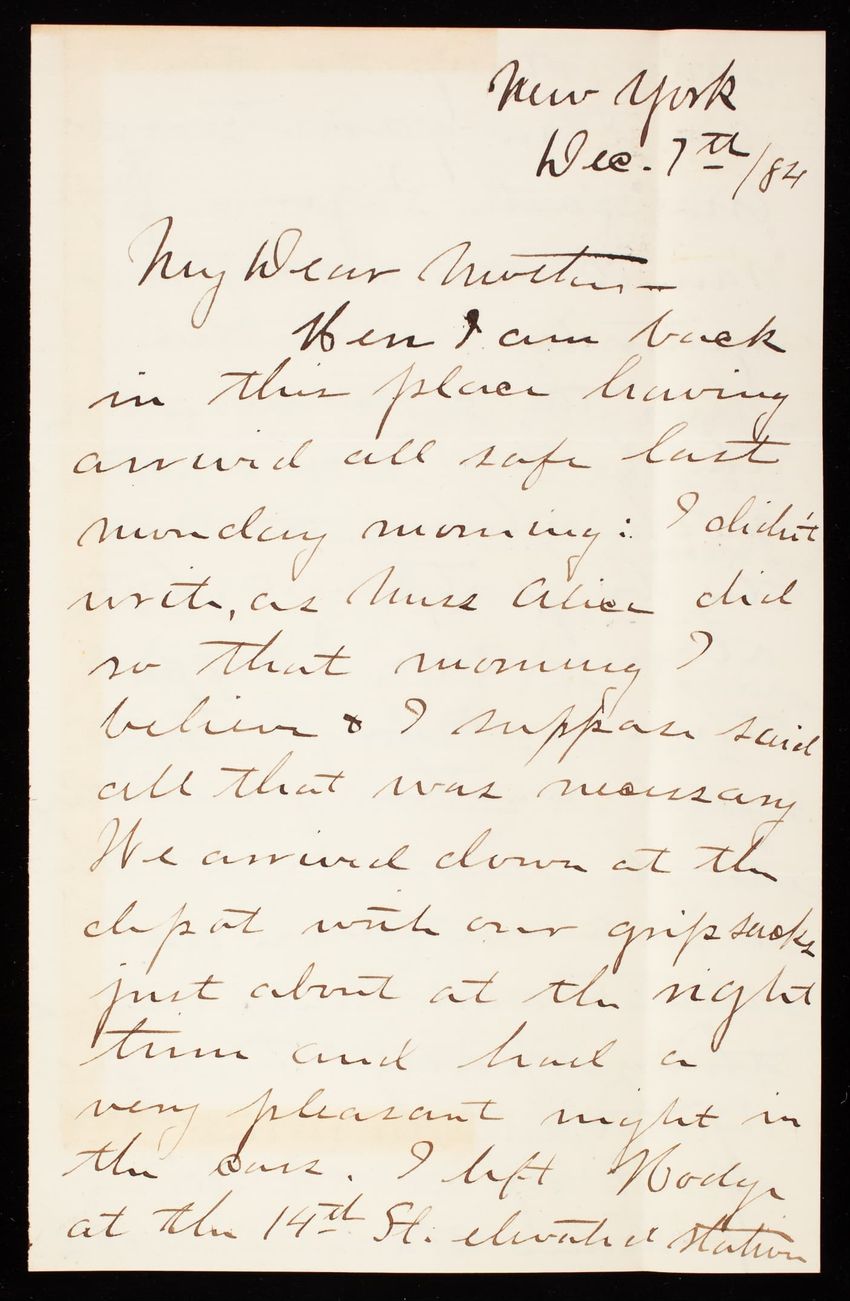 New York
Dec. 7th/84
My Dear Mother—
Here I am back
in this place having
arrived all safe last
monday morning: I didn't
write, as Miss Alice did
so that morning I
believe & I suppose said
all that was necessary
We arrived down at the
depot with our gripsacks
just about at the right
time and had a
very pleasant night in
the cars. I left Hodge
at the 14th St. elevated station